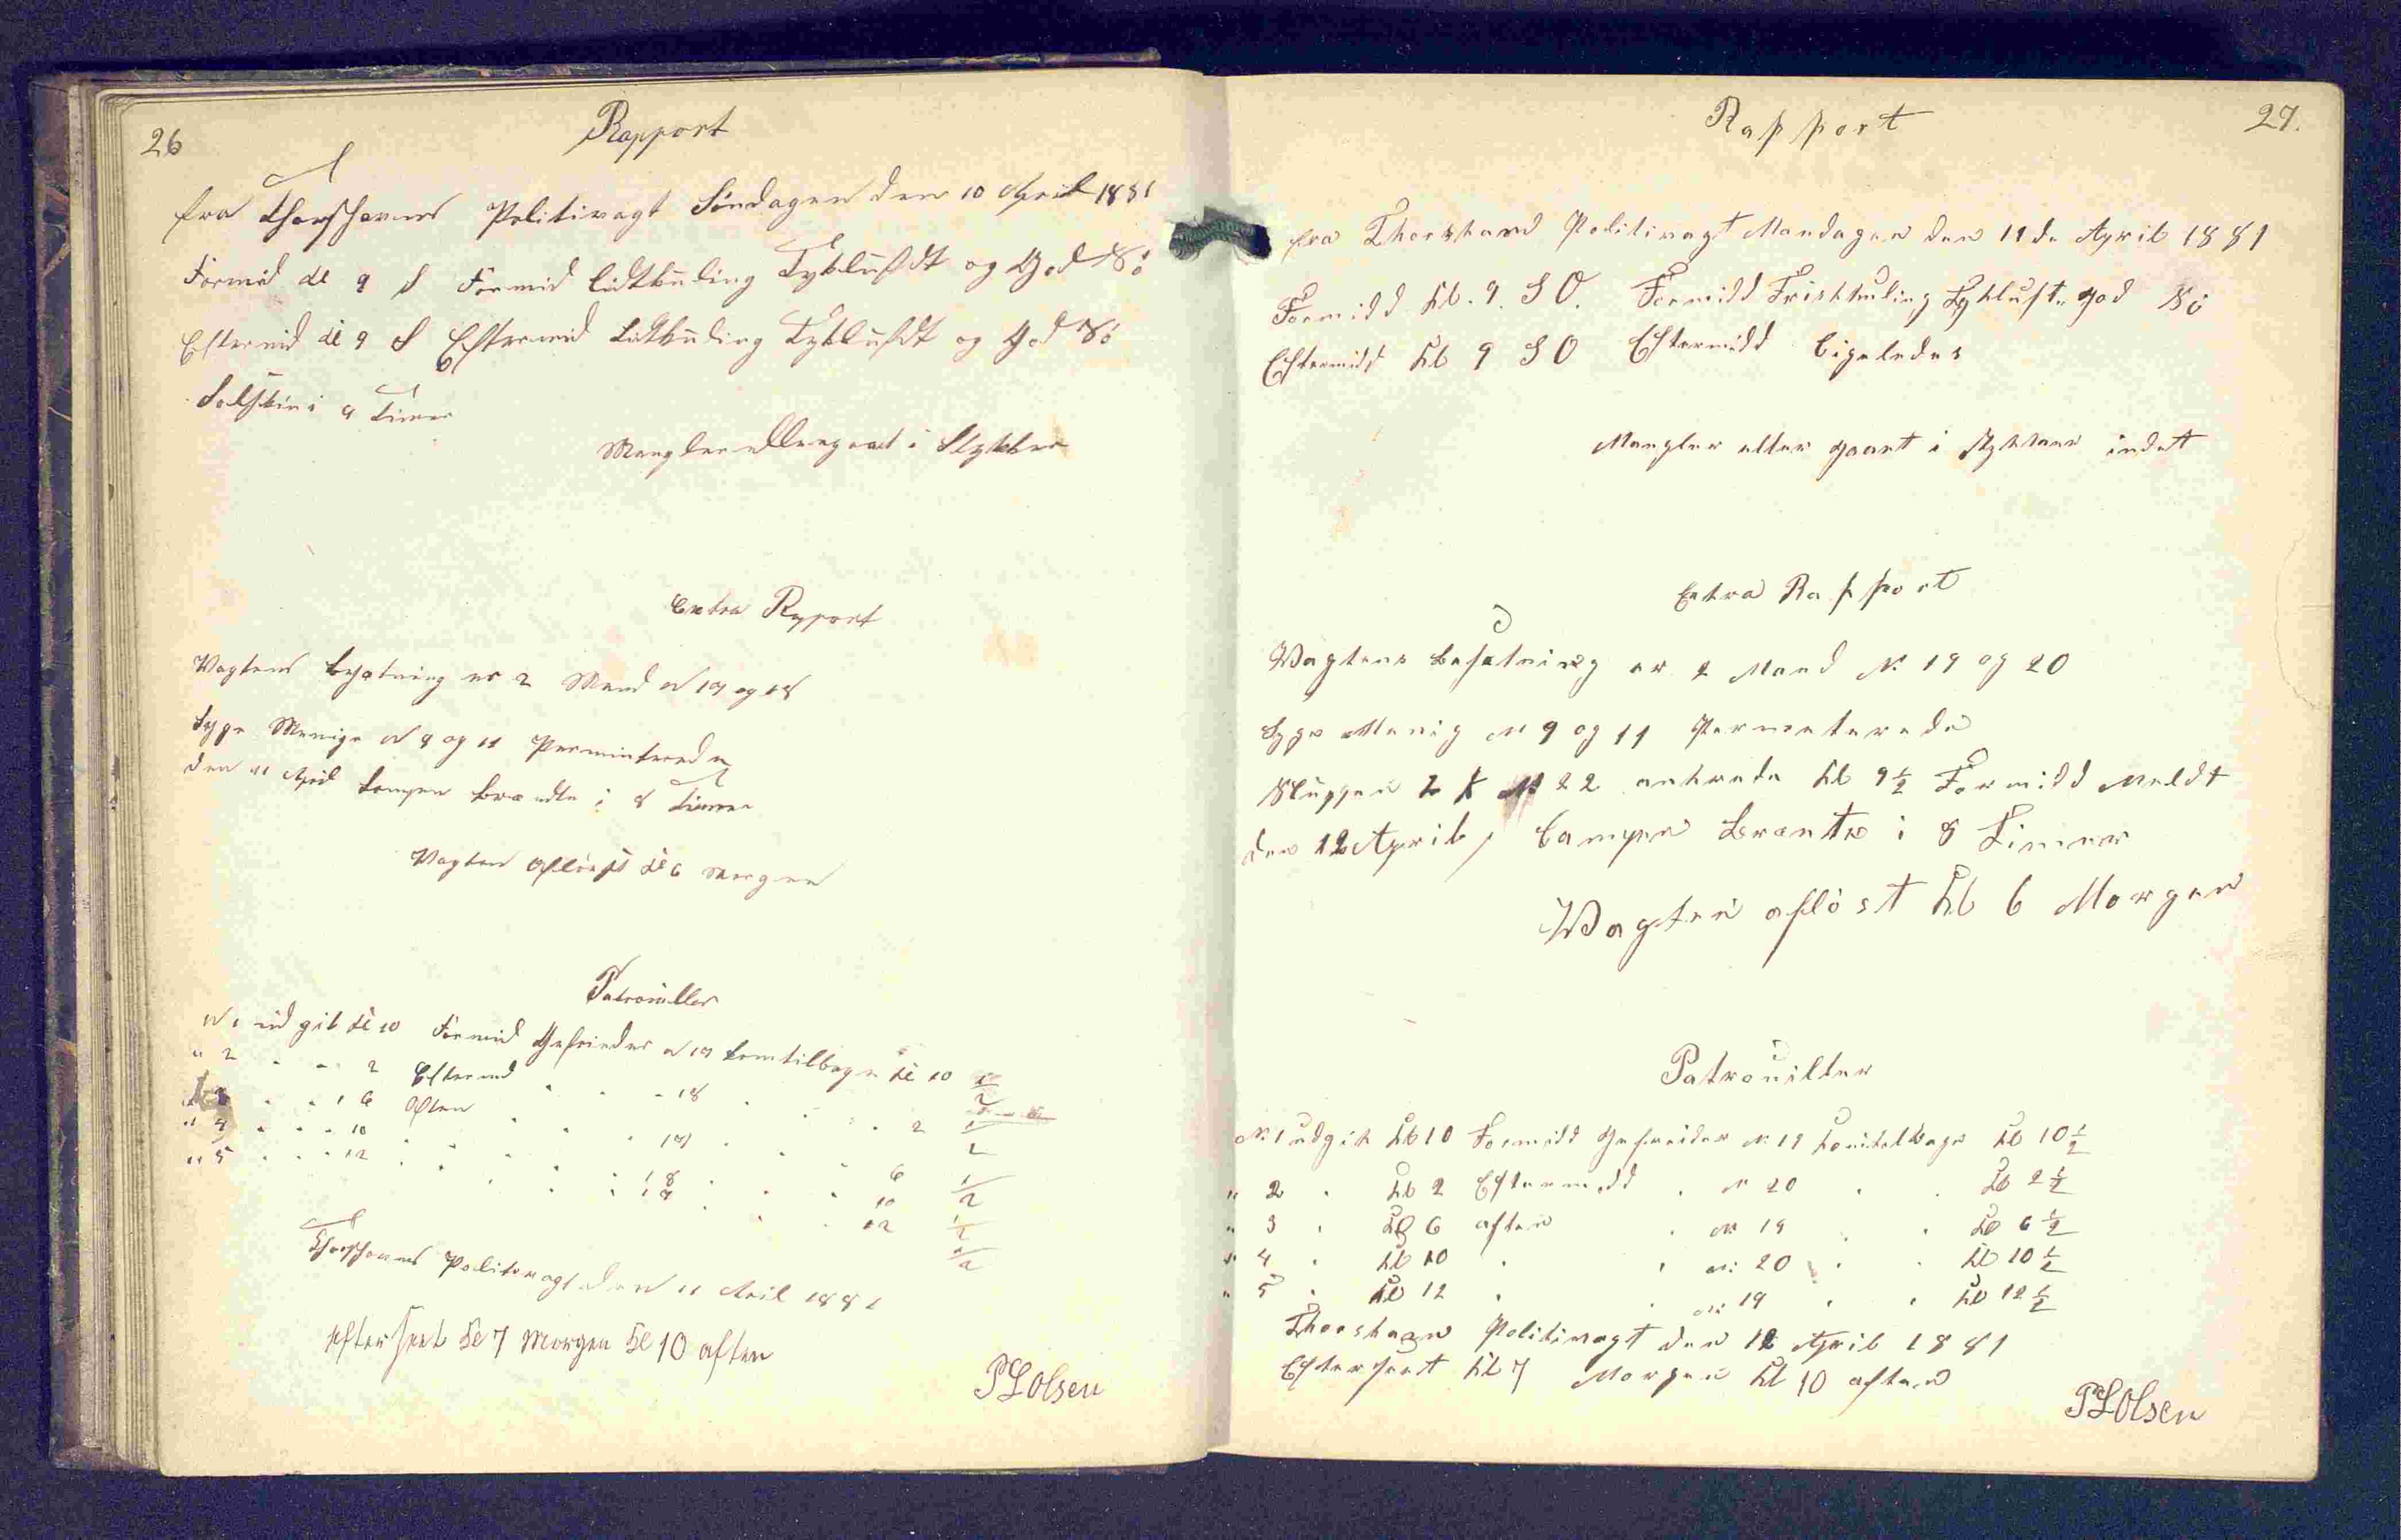 26
Rapport
fra Thorshavns Politivagt Söndagen den 10 April 1881
Formid kl 9 S Formid lidtkuling Tykluft og God Sö
Eftermid kl 9 S Eftermid Lidtkuling Tykluft og God Sö
Solskin i 4 Timer
Mangler eller gaaet i Stykker
Extra Rapport
Vagtens Besætning er 2 Mand N 17 og 18
Syge Menige N 9 og 11 Permitterede
den 11 April Lampen brændte i 8 Timer
Vagten aflöst kl 6 Morgen
Patrouiller
N 1 udgik kl 10 Formid Gefreider N 17 kom tilbage kl 10 1/2
" 2 " " 2 Eftermid " " 18 " " 2 1/2
" 3 " " 6 Aften " " 17 " " 6 1/2
" 4 " " 10 " " 18 " " 10 1/2
" 5 " " 12 " " 17 " " 12 1/2
Thorshavns Politivagt den 11 April 1881
Efter seet Kl 7 Morgen Kl 10 aften
PLOlsen
27.
Rapport
fra Thorshavns Politivagt Mandagen den 11de April 1881
Formidd kl. 9. SO. Formidd Friskkuling Tykluft god Sö
Eftermidd kl 9 SO Eftermidd ligeledes
Mangler eller gaaet i Stykker indet
Extra Rapport
Vagtens besætning er 2 Mand N: 19 og 20
Syge Menig N 9 og 11 Permeterede
Sluppen N 22 ankrede kl 9 1/2 Formidd Meldt
den 12 April, Lampen Brænte i 8 Timer
Vagten aflöst kl 6 Morgen
Patrouiller
N: 1 udgik kl 10 Formidd Gefreider N: 19 komtelbage kl 10 1/2
" 2 " kl 2 Eftermidd " N 20 " " kl 2 1/2
" 3 " kl 6 aften " N: 19 " " kl 6 1/2
" 4 " kl 10 " " N: 20 " " kl 10 1/2
" 5 " kl 12 " " N: 19 " " kl 12 1/2
Thorshavn Politivagt den 12 April 1881
Efterseet kl 7 Morgen kl 10 aften
PLOlsen